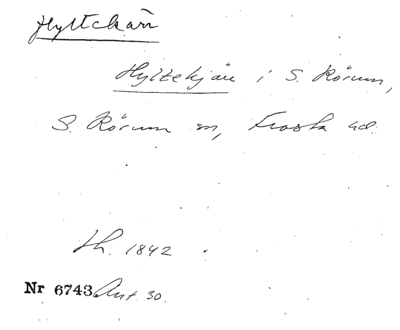 Hyltekärr
Hyltekjärr i S. Rörum,
S. Rörum sn, Frosta hd.
th. 1842
Nr 6743 Ant 30.